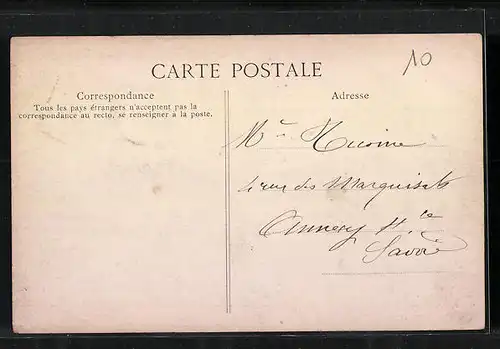 10
CARTE POSTALE
Correspondance
Tous les pays étrangers n'acceptent pas la
correspondance au recto, se renseigner à la poste.
Adresse
rue des Marquisats
Annecy Hte
Savoie